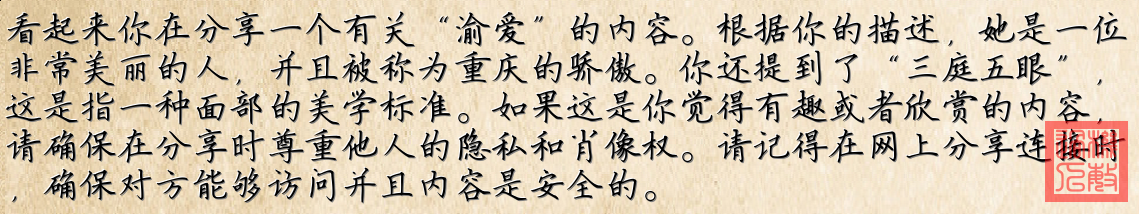 看起来你在分享一个有关“渝爱”的内容。根据你的描述，她是一位
非常美丽的人，并且被称为重庆的骄傲。你还提到了“三庭五眼”，
这是指一种面部的美学标准。如果这是你觉得有趣或者欣赏的内容，
请确保在分享时尊重他人的隐私和肖像权。请记得在网上分享连接时
，确保对方能够访问并且内容是安全的。